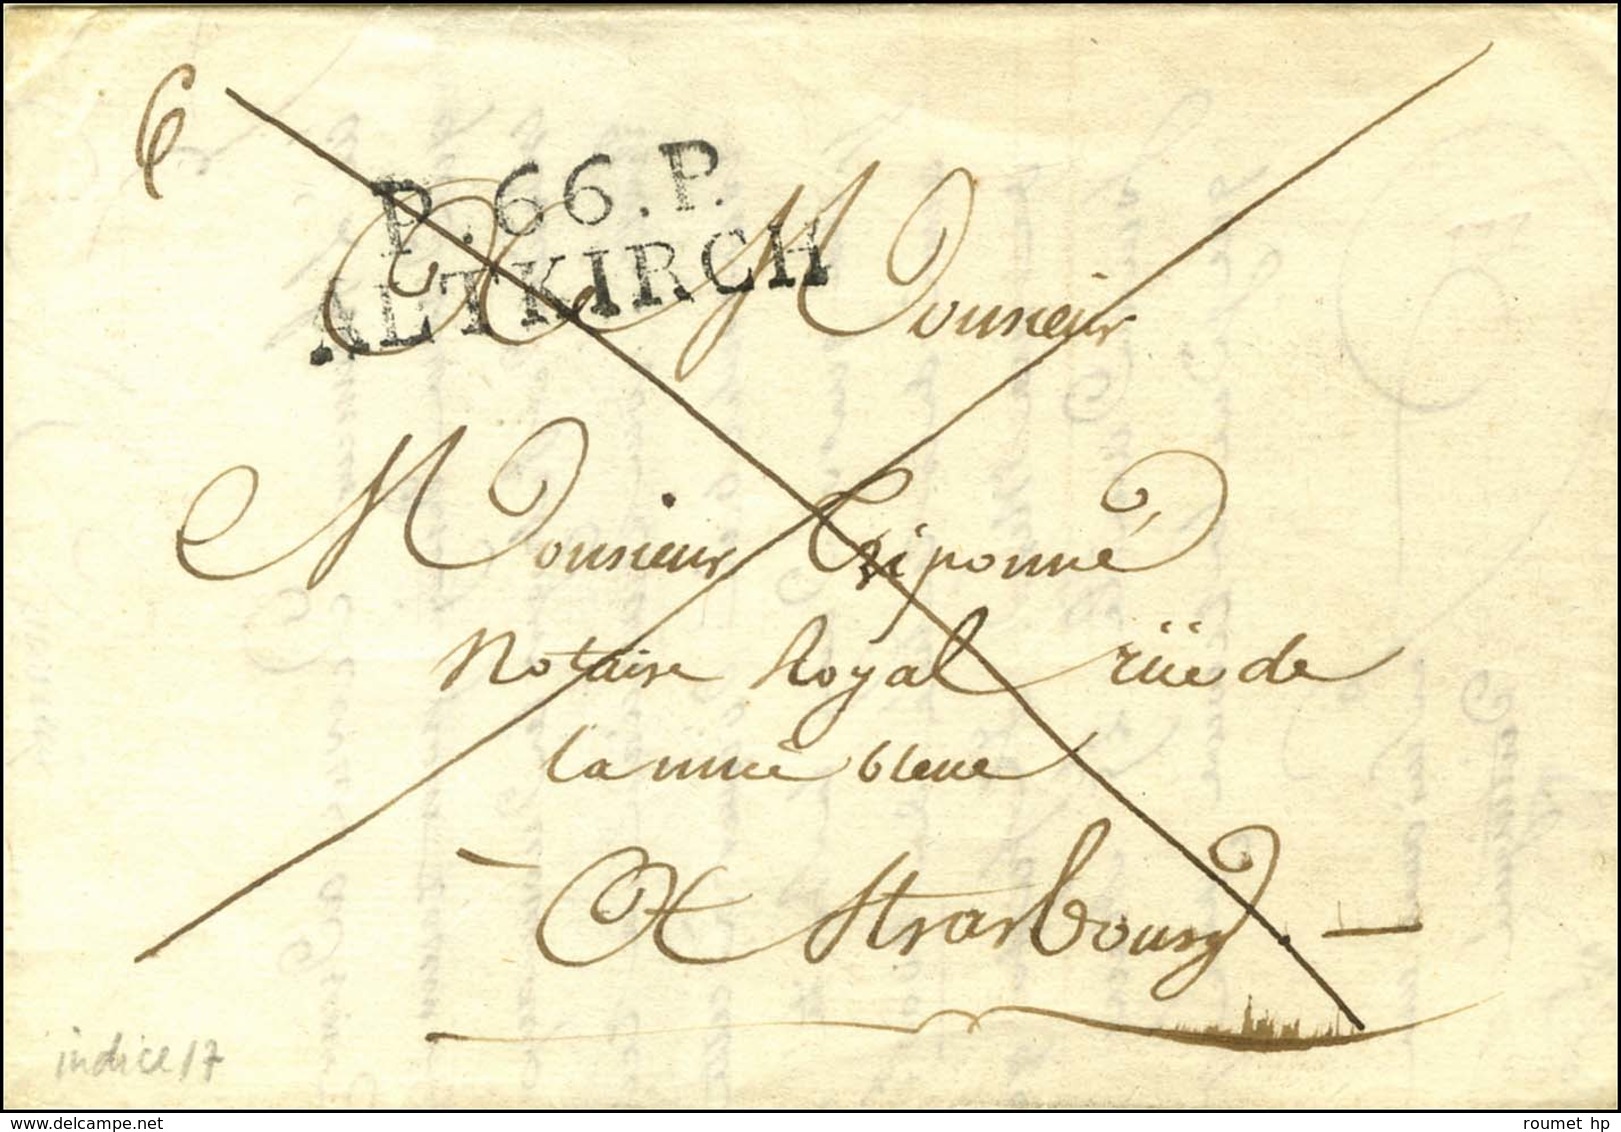 6
P.66.P.
ALTKIRCH
A Monsieur
Monsieur Triponné
Notaire Royal rüe de
la nuée bleue
A Strasbourg. —
indice 17
roumet hp